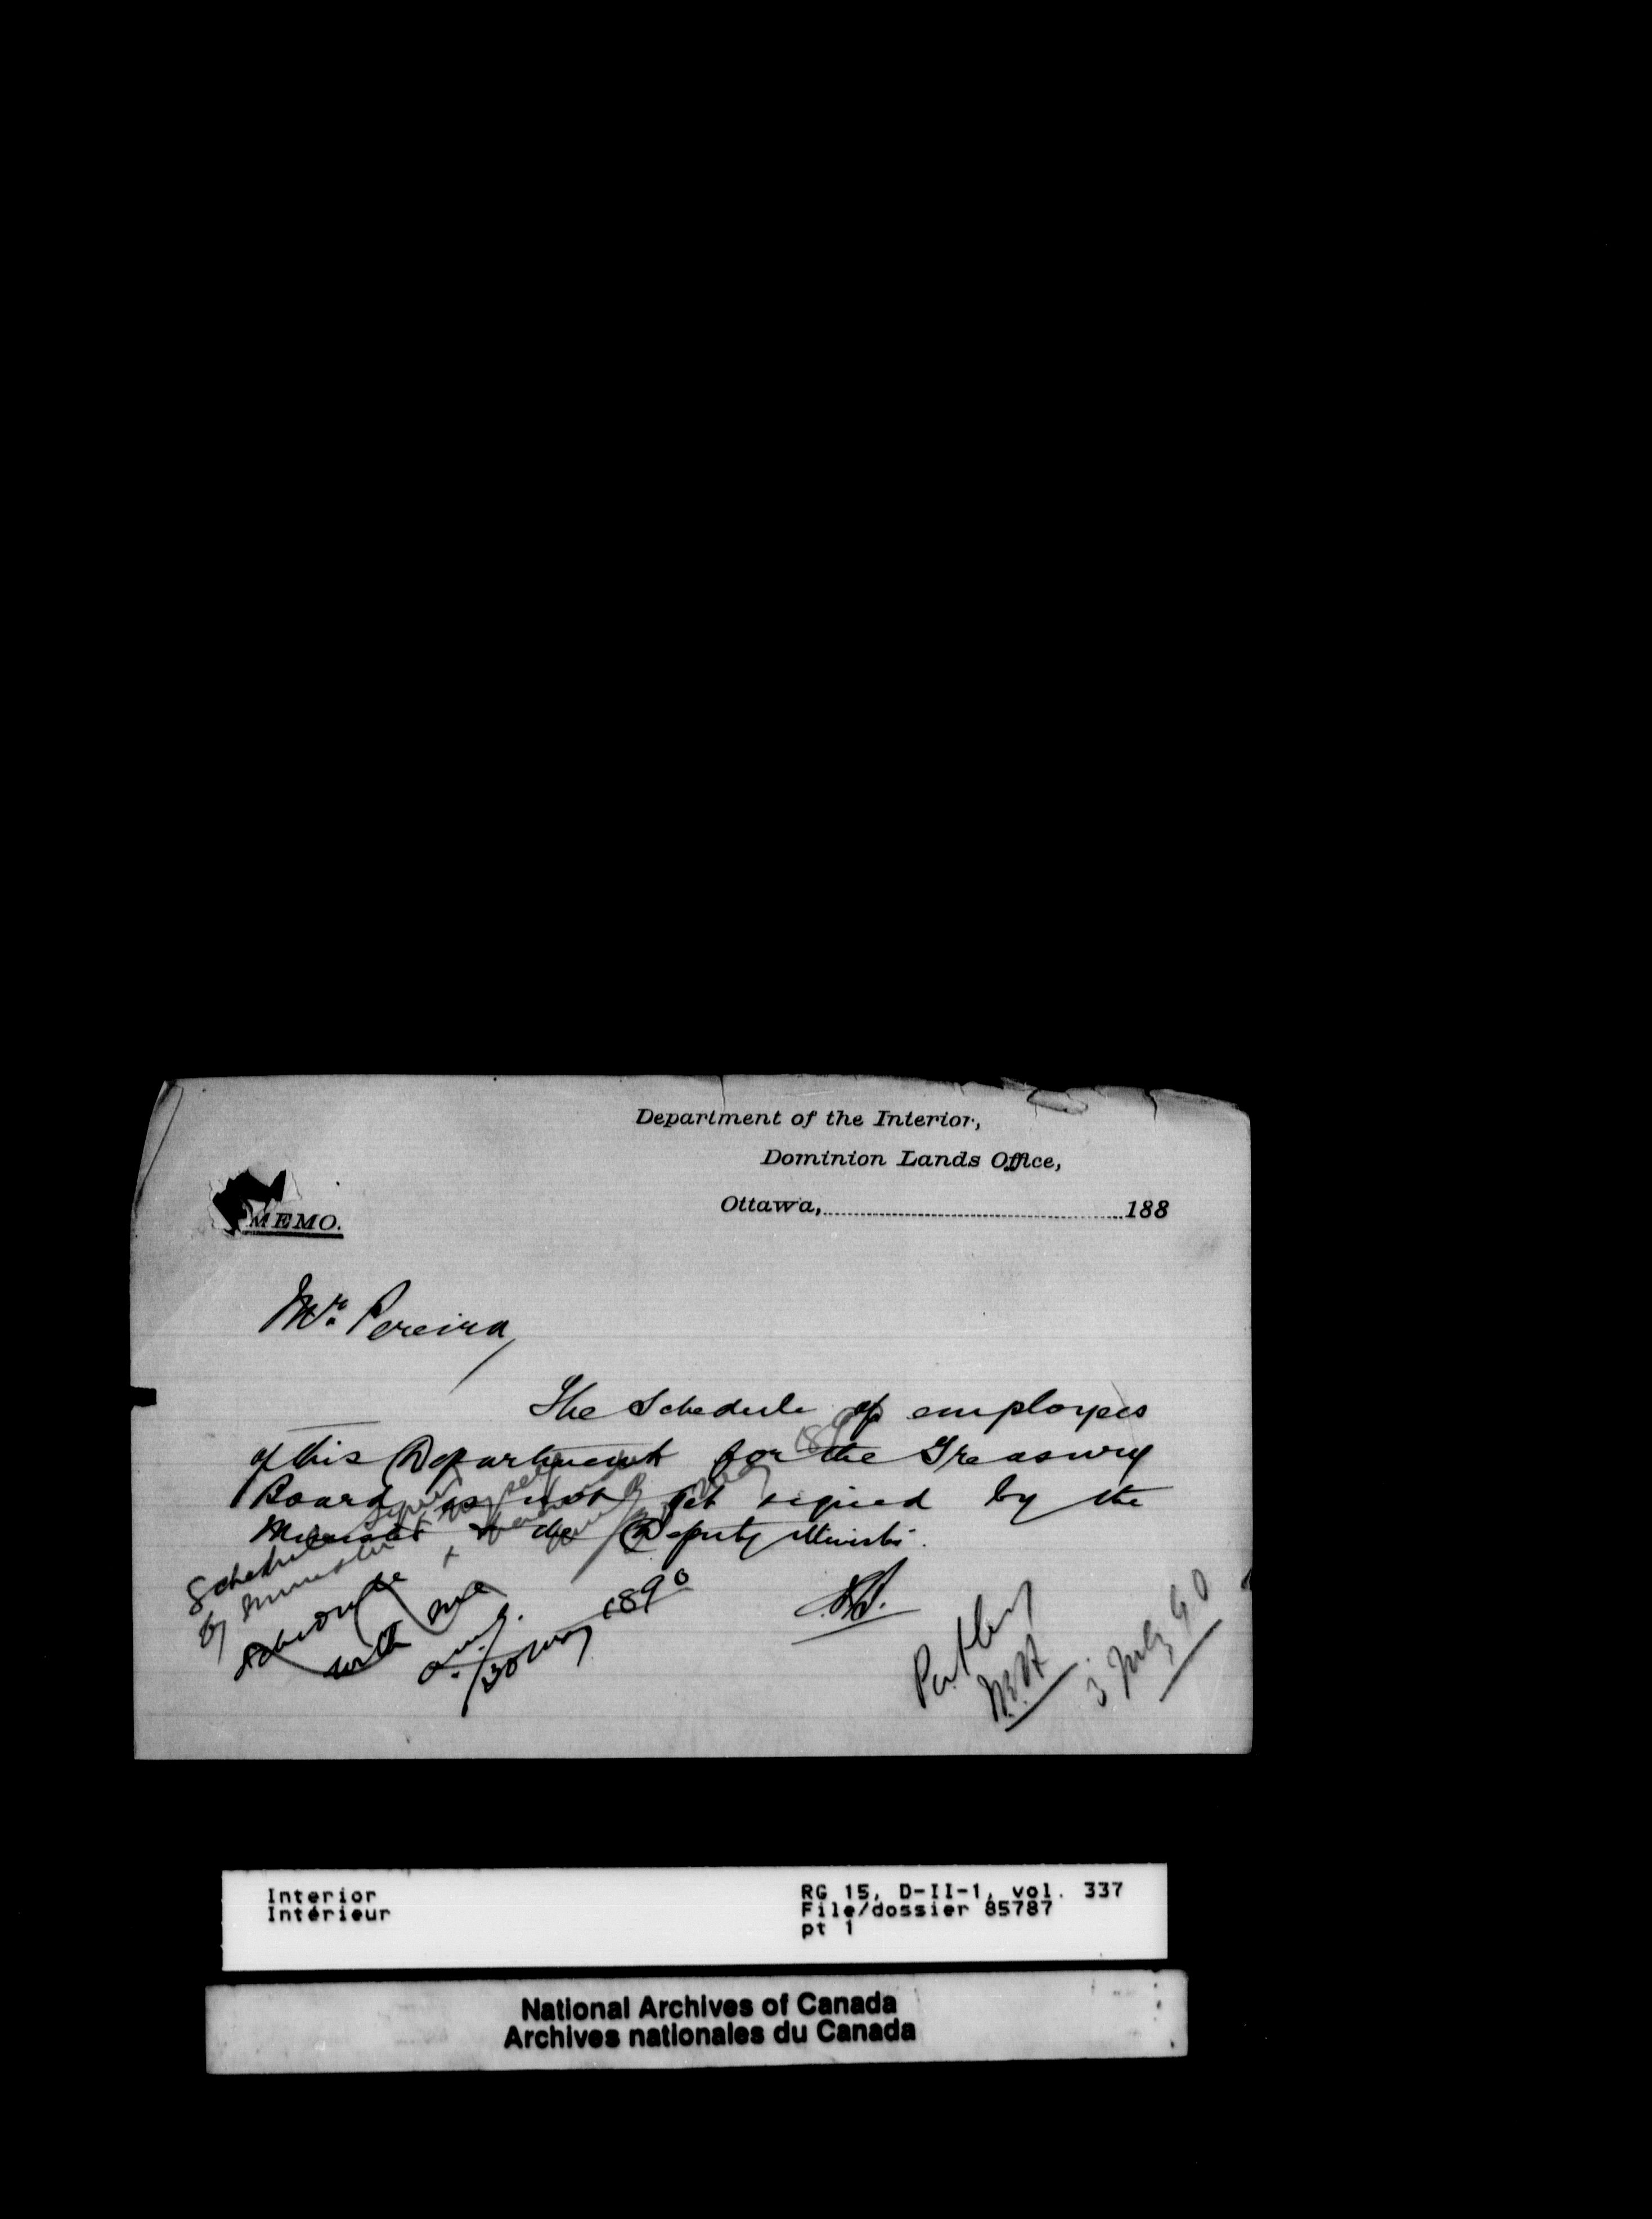 Department of the Interior,
Dominion Lands Office,
Ottawa, 188
MEMO.
Mr. Pereira,
The Schedule of employees
of this Department for the Treasury
Board is not yet signed by the
Minister & the Deputy Minister.
Schedule signed
by Minister
Schedule
with me
30 May 1890
3 July 90
Interior
Intérieur
RG 15, D-II-1, vol. 337
File/dossier 85787
pt 1
National Archives of Canada
Archives nationales du Canada